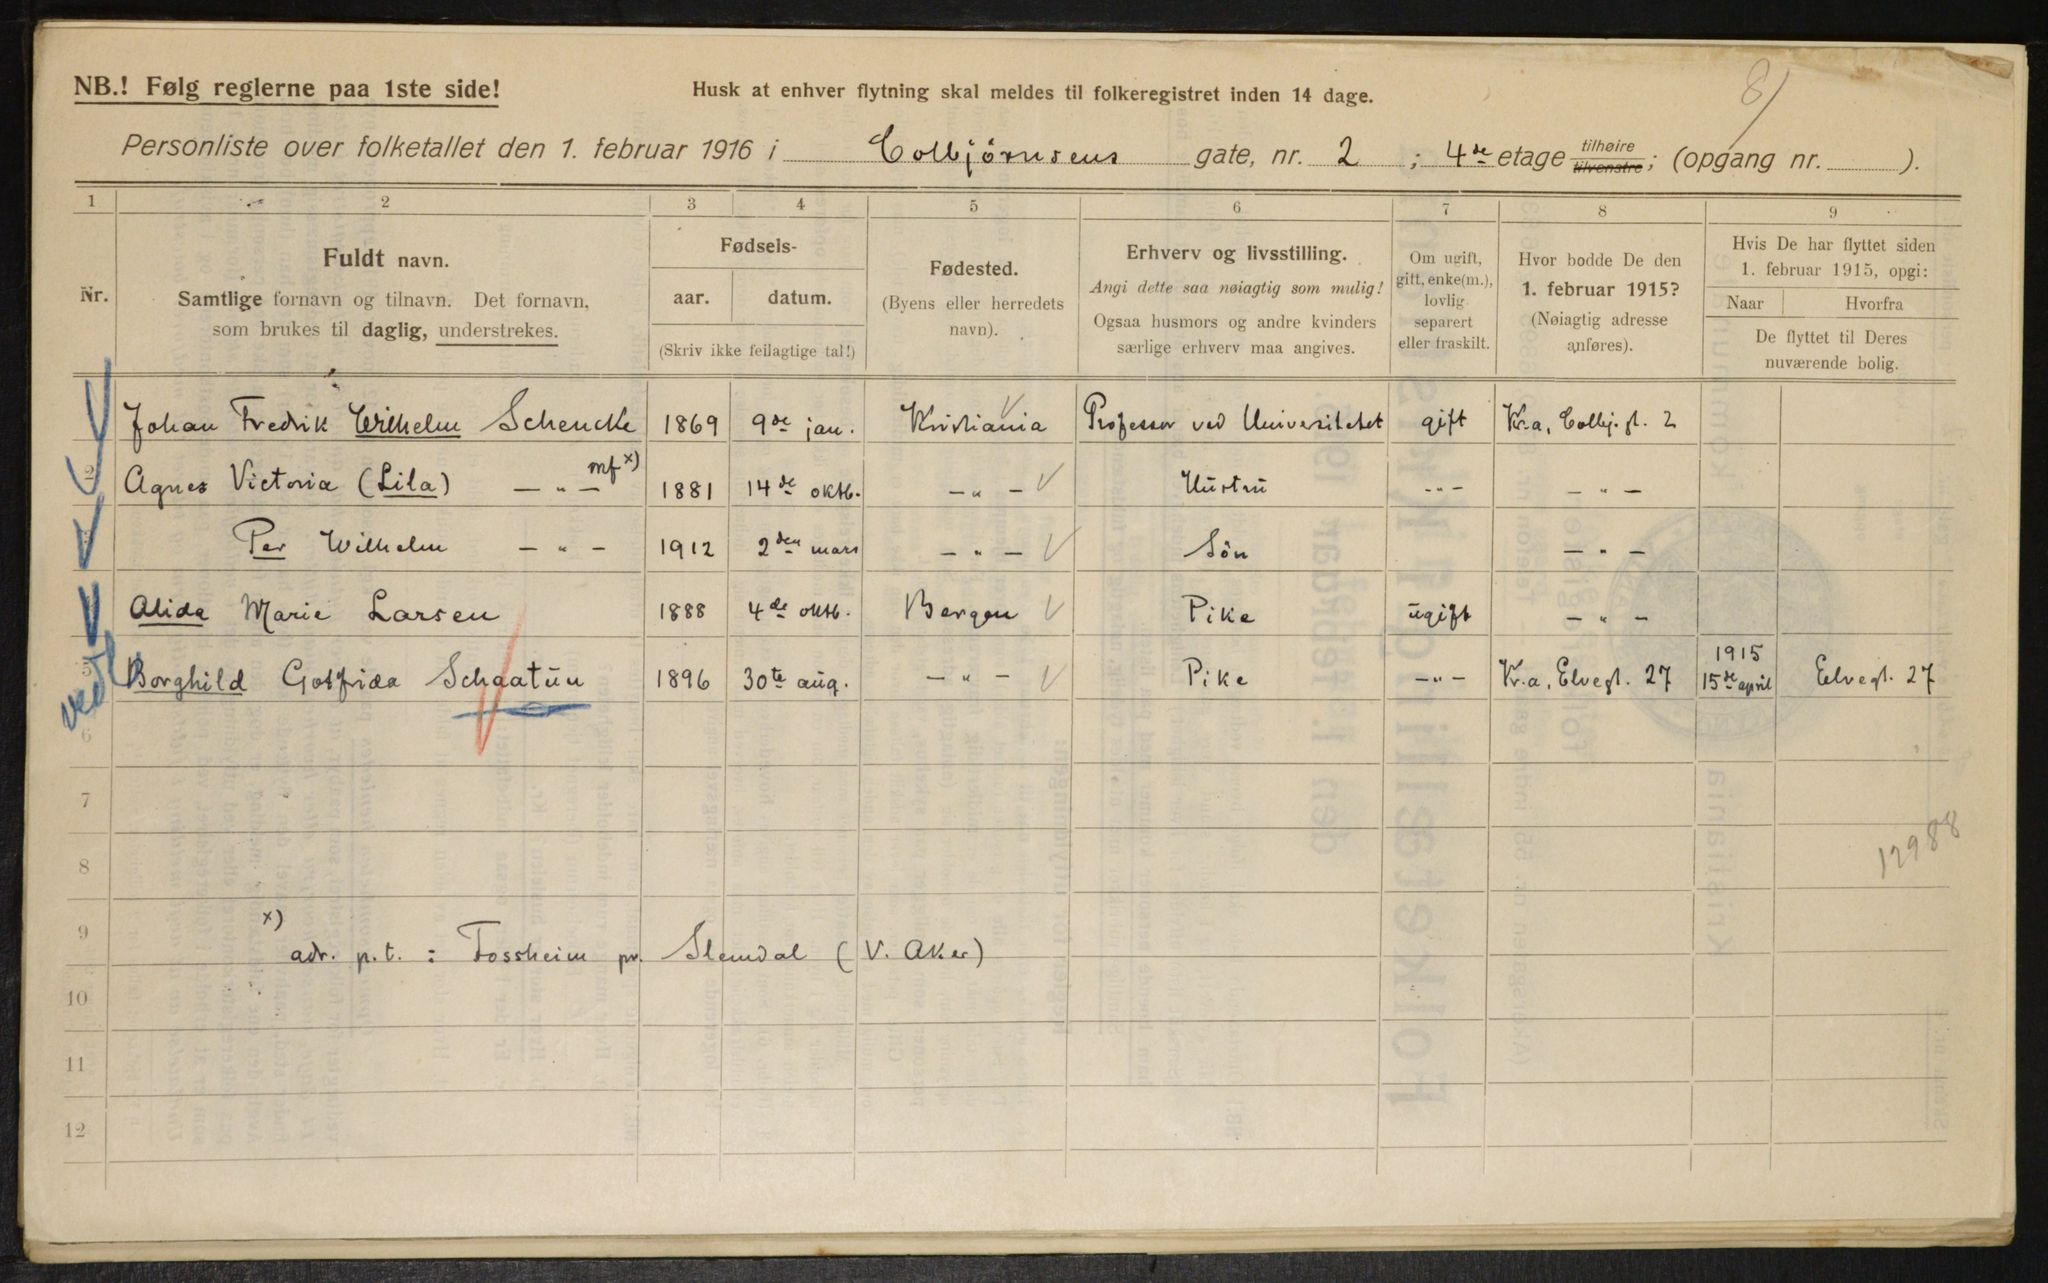 NB.! Følg reglerne paa 1ste side!
Husk at enhver flytning skal meldes til folkeregistret inden 14 dage.
8/
Personliste over folketallet den 1. februar 1916 i Colbjørnsens gate, nr. 2 ; 4de etage tilhøire tilvenstre; (opgang nr. ).
1 2 3 4 5 6 7 8 9
Nr.
Fuldt navn.
Samtlige fornavn og tilnavn. Det fornavn,
som brukes til daglig, understrekes.
Fødsels-
aar. datum.
(Skriv ikke feilagtige tal!)
Fødested.
(Byens eller herredets
navn).
Erhverv og livsstilling.
Angi dette saa nøiagtig som mulig!
Ogsaa husmors og andre kvinders
særlige erhverv maa angives.
Om ugift,
gift, enke(m.),
lovlig
separert
eller fraskilt.
Hvor bodde De den
1. februar 1915?
(Nøiagtig adresse
anføres).
Hvis De har flyttet siden
1. februar 1915, opgi:
Naar Hvorfra
De flyttet til Deres
nuværende bolig.
Johan Fredrik Wilhelm Schencke 1869 9de jan. Kristiania Professor ved Universitetet gift Kr.a, Colbj.gt. 2
2 Agnes Victoria (Lila) — " — mf x) 1881 14de oktb. — " — Hustru - " - — " —
Per Wilhelm — " — 1912 2den mars — " — Søn — " —
Alida Marie Larsen 1888 4de oktb. Bergen Pike ugift — " —
5 Borghild Gotfrida Schaatun 1896 30te aug. — " — Pike — " — Kr.a, Elvegt. 27 1915 15de april Elvegt. 27
6
7
8
12988
9
x) adr. p.t. : Fossheim pr. Slemdal (V. Aker)
10
11
12